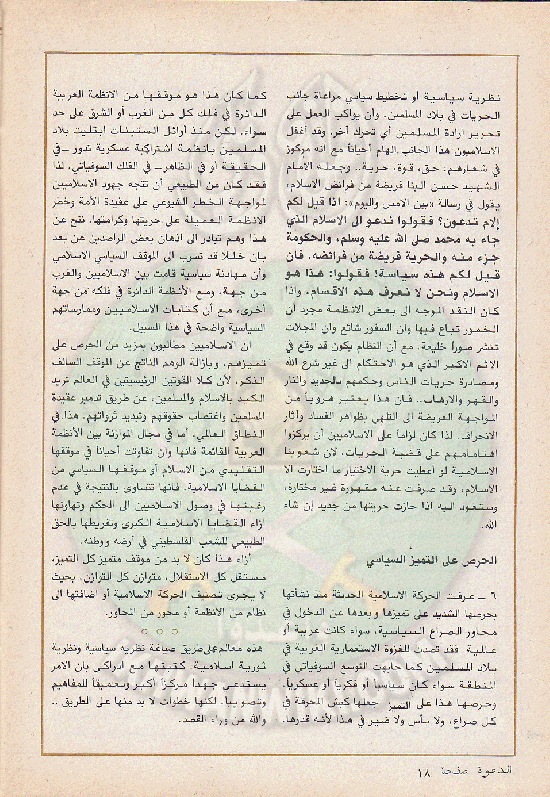 نظرية سياسية أو تخطيط سياسي مراعاة جانب
الحريات في بلاد المسلمين. وأن يواكب العمل على
تحرير ارادة المسلمين أي تحرك آخر. وقد أغفل
الاسلاميون هذا الجانب الهام أحياناً مع انه مركوز
في شعارهم: حق، قوة، حرية.. وجعله الامام
الشهيد حسن البنا فريضة من فرائض الاسلام،
يقول في رسالة «بين الامس واليوم»: اذا قيل لكم
إلام تدعون؟ فقولوا ندعو الى الاسلام الذي
جاء به محمد صلى الله عليه وسلم، والحكومة
جزء منه والحرية فريضة من فرائضه. فان
قيل لكم هذه سياسة! فقولوا: هذا هو
الاسلام ونحن لا نعرف هذه الاقسام. واذا
كان النقد الموجه الى بعض الانظمة مجرد أن
الخمور تباع فيها وان السفور شائع وان المجلات
تنشر صوراً خليعة. مع أن النظام يكون قد وقع في
الاثم الاكبر الذي هو الاحتكام الى غير شرع الله
ومصادرة حريات الناس وحكمهم بالحديد والنار
والقهر والارهاب. فان هذا يعتبر هروباً من
المواجهة العريضة الى التلهي بظواهر الفساد وآثار
الانحراف. لذا كان لزاماً على الاسلاميين أن يركزوا
اهتمامهم على قضية الحريات. لأن شعوبنا
الاسلامية لو أعطيت حرية الاختيار ما اختارت الا
الاسلام، وقد صرفت عنه مقهورة غير مختارة،
وستعود اليه اذا حازت حريتها من جديد إن شاء
الله.
الحرص على التميز السياسي
٦ ـ عرفت الحركة الاسلامية الحديثة منذ نشأتها
بحرصها الشديد على تميزها وبعدها عن الدخول في
محاور الصراع السياسية، سواء كانت عربية أو
عالمية. فقد تصدت للغزوة الاستعمارية الغربية في
بلاد المسلمين كما جابهت التوسع السوفياتي في
المنطقة سواء كان سياسياً أو فكرياً أو عسكرياً.
وحرصها هذا على التميز جعلها كبش المحرقة في
كل صراع، ولا بأس ولا ضير في هذا لأنه قدرها.
كما كان هذا هو موقفها من الانظمة العربية
الدائرة في فلك كل من الغرب أو الشرق على حد
سواء. لكن منذ أوائل الستينات ابتليت بلاد
المسلمين بأنظمة اشتراكية عسكرية تدور ـ في
الحقيقة أو في الظاهر ـ في الفلك السوفياتي. لذا
فقد كان من الطبيعي أن تتجه جهود الاسلاميين
لمواجهة الخطر الشيوعي على عقيدة الأمة وخطر
الانظمة العميلة على حريتها وكرامتها. نتج عن
هذا وهم تبادر الى اذهان بعض الراصدين عن بعد
بأن خللا قد تسرب الى الموقف السياسي الاسلامي
وأن مهادنة سياسية قامت بين الاسلاميين والغرب
من جهة. ومع الأنظمة الدائرة في فلكه من جهة
أخرى، مع أن كتابات الاسلاميين وممارساتهم
السياسية واضحة في هذا السبيل.
ان الاسلاميين مطالبون بمزيد من الحرص على
تميزهم، وبازالة الوهم الناتج عن الموقف السالف
الذكر، لأن كلا القوتين الرئيستين في العالم تريد
الكيد بالاسلام والمسلمين، عن طريق تدمير عقيدة
المسلمين واغتصاب حقوقهم وتبديد ثرواتهم. هذا في
النطاق العالمي. أما في مجال الموازنة بين الأنظمة
العربية القائمة فانها وان تفاوتت أحياناً في موقفها
التقليدي من الاسلام أو موقفها السياسي من
القضايا الاسلامية. فانها تتساوى بالنتيجة في عدم
رغبتها في وصول الاسلاميين الى الحكم وتهاونها
ازاء القضايا الاسلامية الكبرى وتفريطها بالحق
الطبيعي للشعب الفلسطيني في أرضه ووطنه.
أزاء هذا كان لا بد من موقف متميز كل التميز،
مستقل كل الاستقلال، متوازن كل التوازن. بحيث
لا يجري تصنيف الحركة الاسلامية أو اضافتها الى
نظام من الانظمة أو محور من المحاور.
○ ○ ○
هذه معالم على طريق صياغة نظرية سياسية ونظرية
ثورية اسلامية كتبتها مع ادراكي بأن الامر
يستدعي جهداً مركزاً أكبر وتعميقاً للمفاهيم
وتصويباً. لكنها خطوات لا بد منها على الطريق ..
والله من وراء القصد.
الدعوة صفحة ١٨